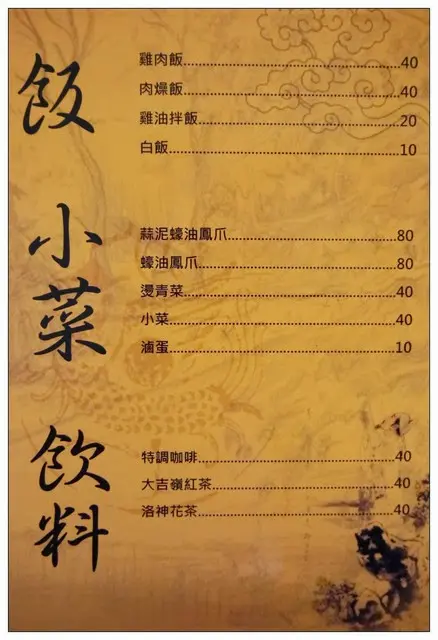 飯
雞肉飯..............................40
肉燥飯..............................40
雞油拌飯..............................20
白飯..............................10
小菜
蒜泥蠔油鳳爪..............................80
蠔油鳳爪..............................80
燙青菜..............................40
小菜..............................40
滷蛋..............................10
飲料
特調咖啡..............................40
大吉嶺紅茶..............................40
洛神花茶..............................40